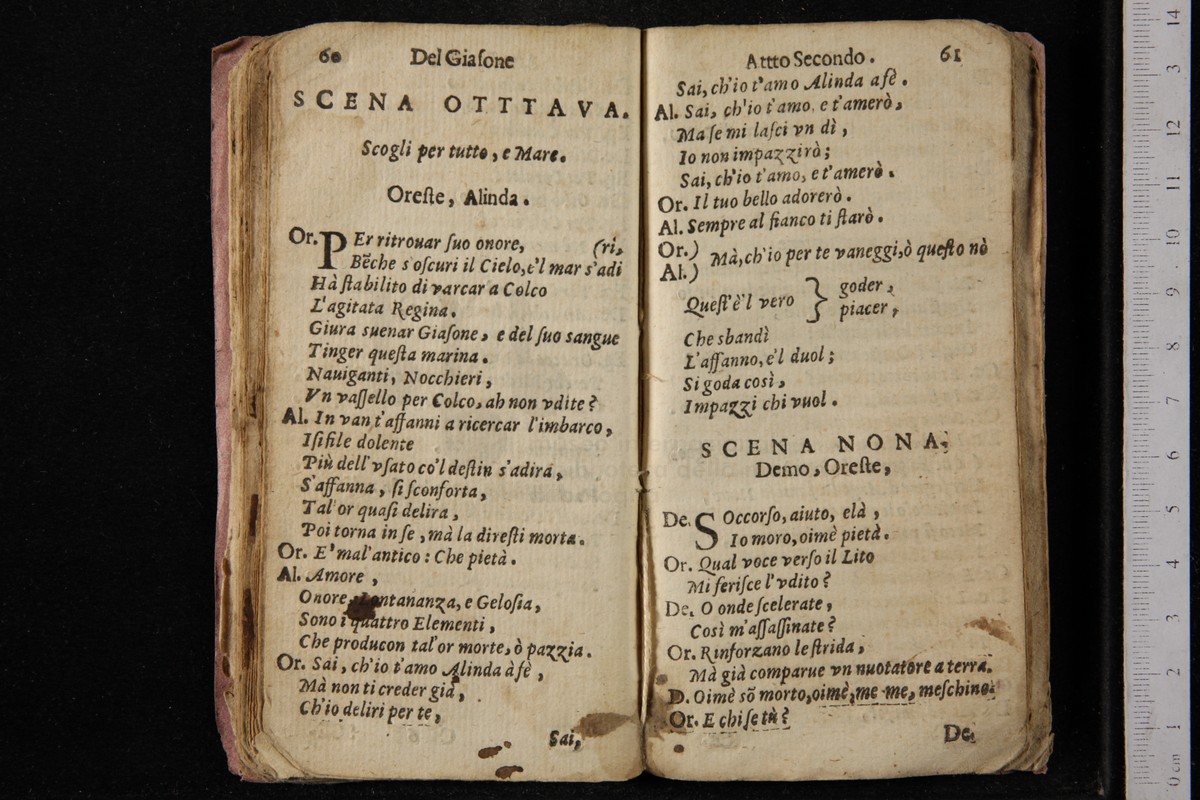 60 Del Giaſone
SCENA OTTTAVA.
Scogli per tutto, e Mare.
Oreſte, Alinda.
Or. PEr ritrouar ſuo onore, (ri,
Bẽche s'oſcuri il Cielo, e'l mar s'adi
Hà ſtabilito di varcar a Colco
L'agitata Regina.
Giura suenar Giaſone, e del ſuo sangue
Tinger queſta marina.
Nauiganti, Nocchieri,
Vn vaſſello per Colco, ah non vdite?
Al. In van t'affanni a ricercar l'imbarco,
Iſifile dolente
Più dell'vſato co'l deſtin s'adira,
S'affanna, ſi ſconforta,
Tal'or quaſi delira,
Poi torna in ſe, mà la direſti morta.
Or. E' mal'antico: Che pietà.
Al. Amore,
Onore, Lontananza, e Geloſia,
Sono i quattro Elementi,
Che producon tal'or morte, ò pazzia.
Or. Sai, ch'io t'amo Alinda à fè,
Mà non ti creder già,
Ch'io deliri per te,
Sai,
Attto Secondo. 61
Sai, ch'io t'amo Alinda afè.
Al. Sai, ch'io t'amo, e t'amerò,
Ma ſe mi laſci vn dì,
Io non impazzirò;
Sai, ch'io t'amo, e t'amerò.
Or. Il tuo bello adorerò.
Al. Sempre al fianco ti ſtarò.
Or.) Mà, ch'io per te vaneggi, ò queſto nò
Al.)
Queſt'è'l vero } goder,
piacer,
Che sbandì
L'affanno, e'l duol;
Si goda così,
Impazzi chi vuol.
SCENA NONA.
Demo, Oreſte,
De. SOccorſo, aiuto, elà,
Io moro, oimè pietà.
Or. Qual voce verſo il Lito
Mi feriſce l'vdito?
De. O onde ſcelerate,
Così m'aſſaſſinate?
Or. Rinforzano le ſtrida,
Mà già comparue vn nuotatore a terra.
D. Oimè sõ morto, oimè, me me, meſchino.
Or. E chi ſe tù?
De.